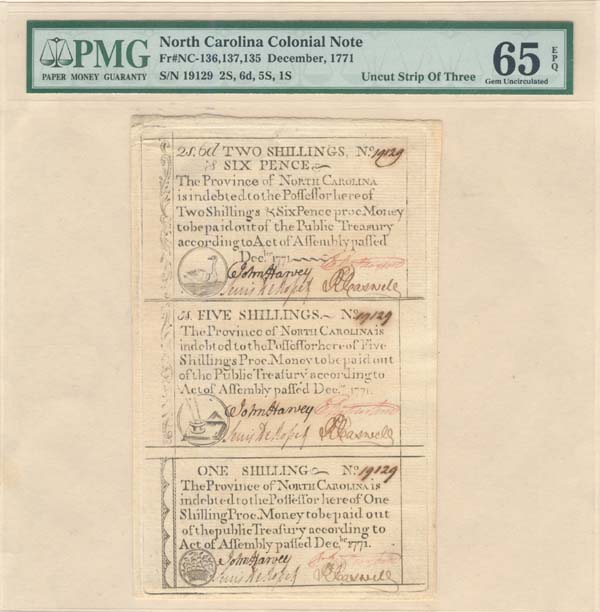 PMG
PAPER MONEY GUARANTY
North Carolina Colonial Note
Fr#NC-136,137,135 December, 1771
S/N 19129 2S, 6d, 5S, 1S
Uncut Strip Of Three
65 EPQ
Gem Uncirculated
2s. 6d TWO SHILLINGS, No. 19129
& SIX PENCE.
The Province of NORTH CAROLINA
is indebted to the Poſſeſſor here of
Two Shillings & Six Pence proc. Money
to be paid out of the Public Treasury
according to Act of Aſſembly paſſed
Decbr. 1771
John Harvey
Lewis De Roſſet
R Caswell
5s. FIVE SHILLINGS. No. 19129
The Province of NORTH CAROLINA is
indebted to the Poſſeſſor here of Five
Shillings Proc. Money to be paid out
of the Public Treaſury according to
Act of Aſſembly paſſed Dec. 1771.
John Harvey
Lewis De Roſſet
R Caswell
ONE SHILLING No. 19129
The Province of NORTH CAROLINA is
indebted to the Poſſeſſor here of One
Shilling Proc. Money to be paid out
of the public Treasury according to
Act of Aſſembly paſſed Dec.br 1771.
John Harvey
Lewis De Roſſet
R Caswell